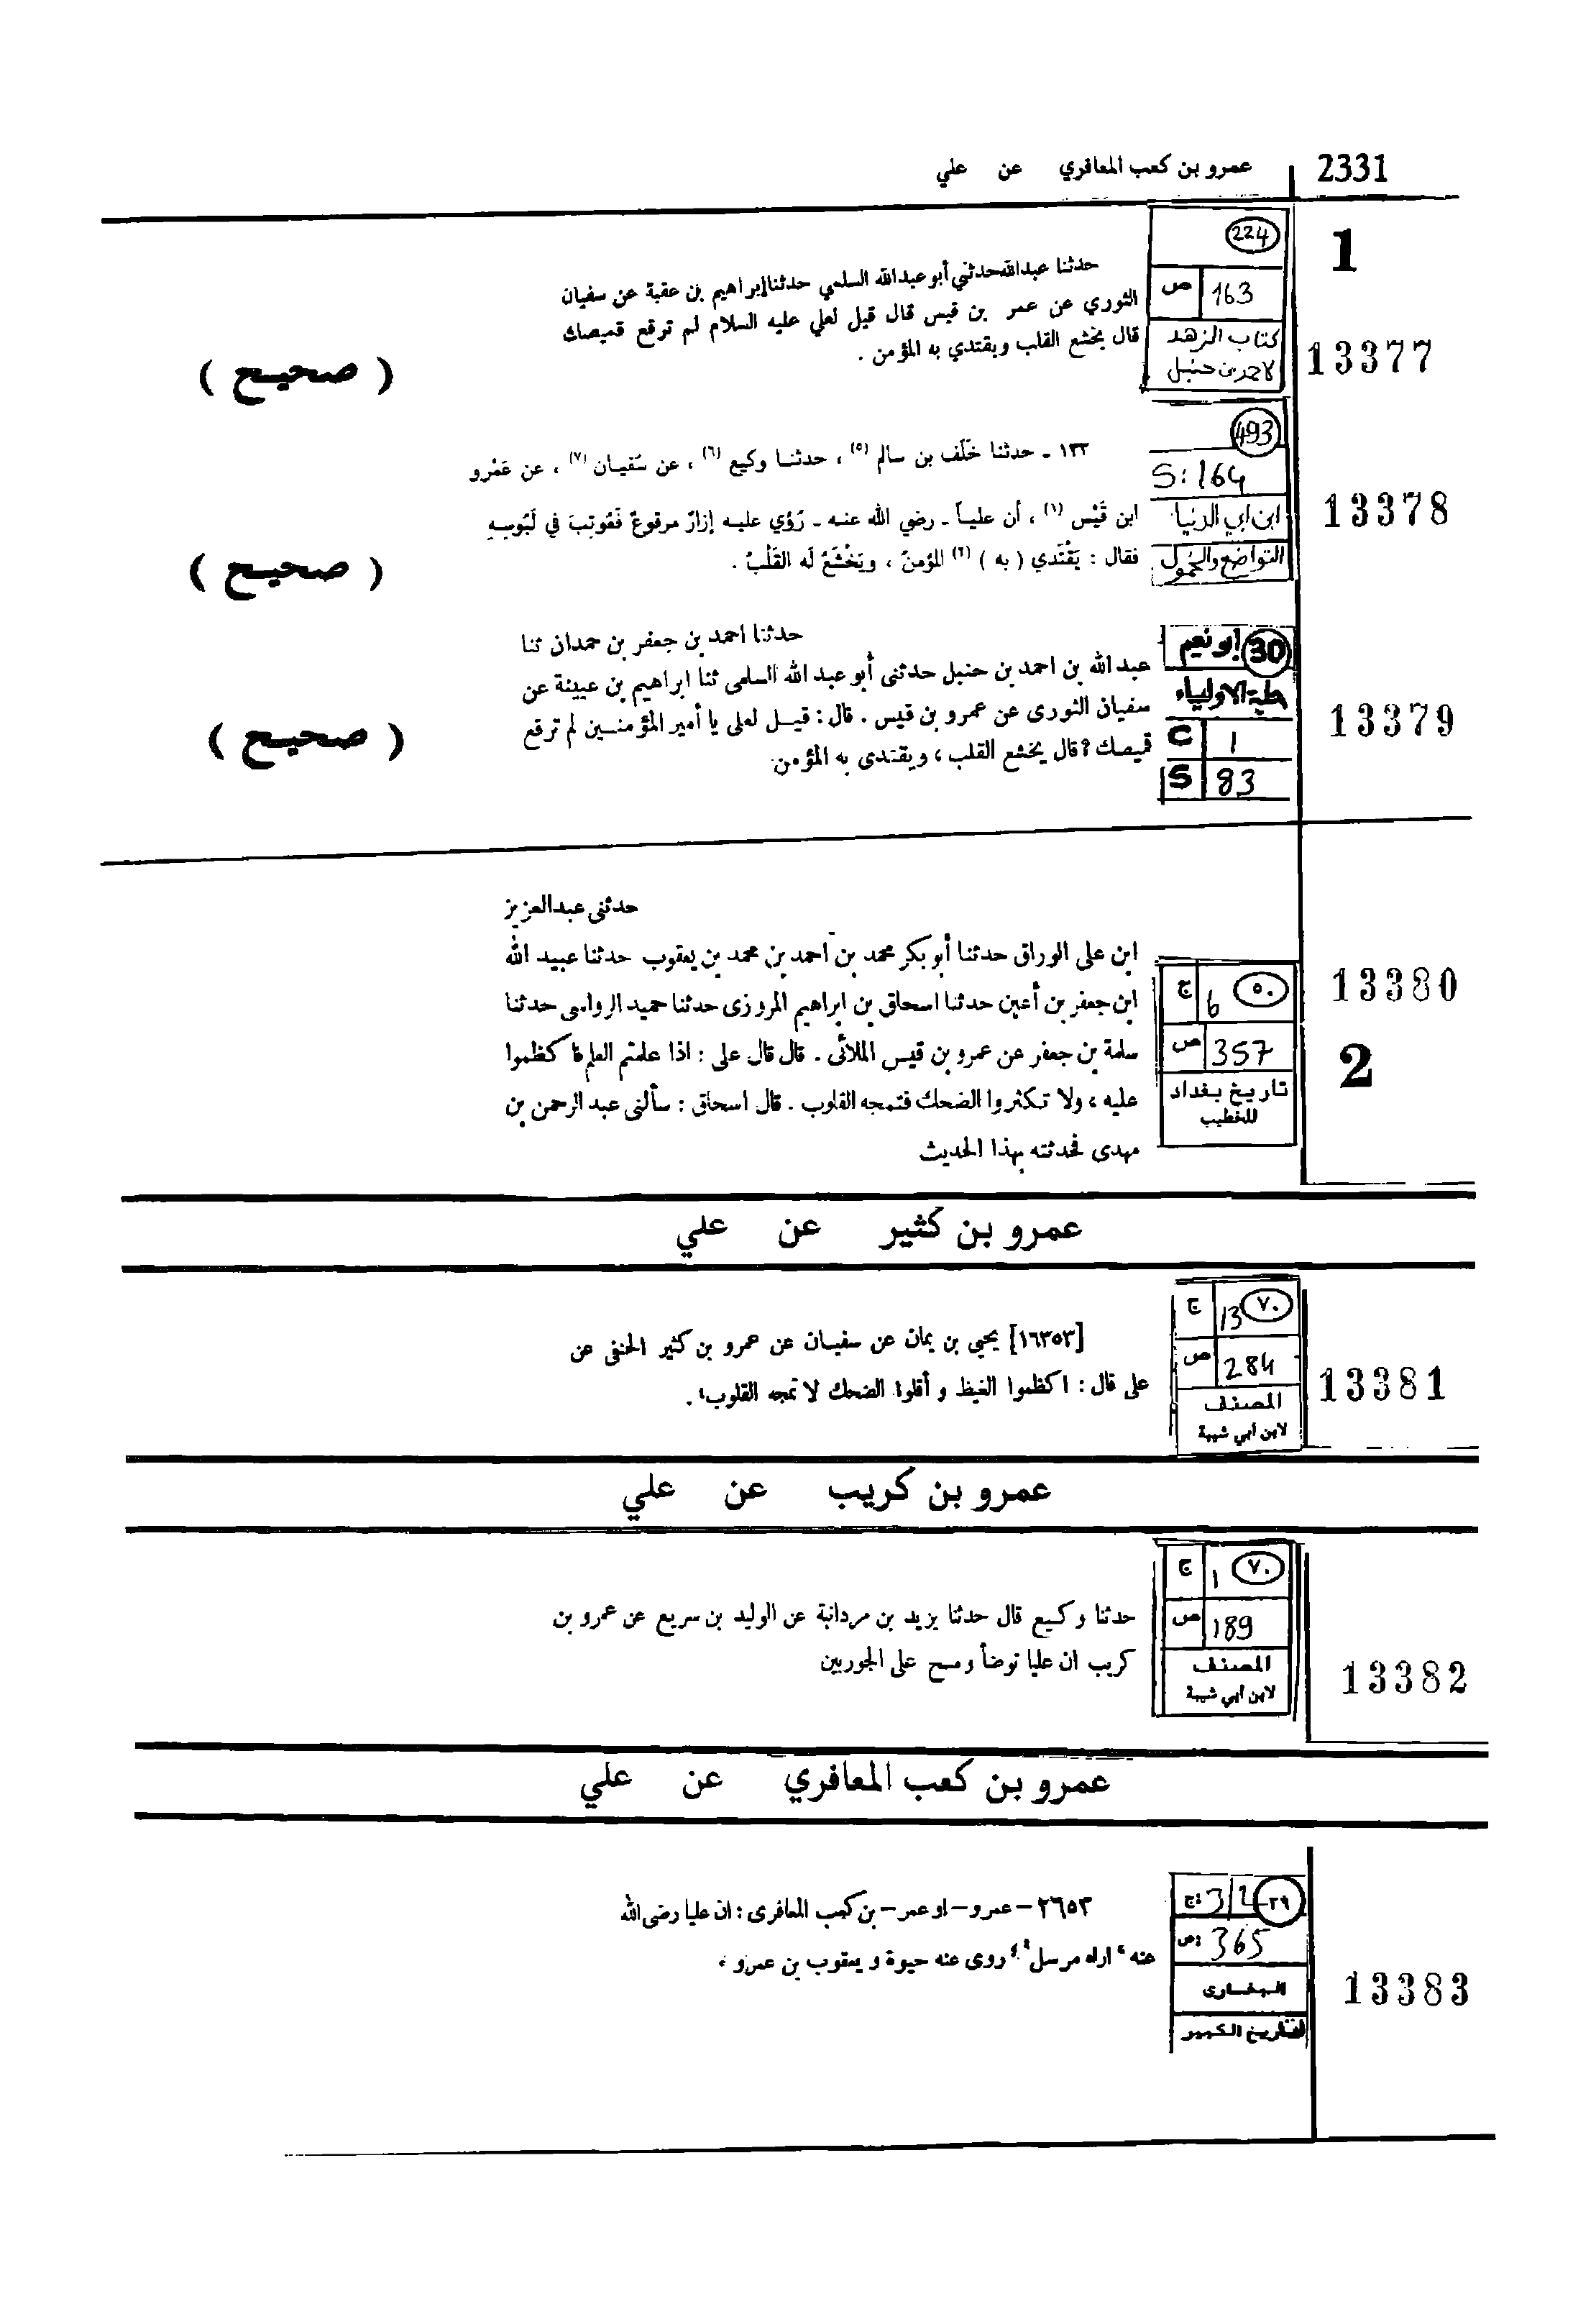 2331 عمرو بن كعب المعافري عن علي
1
224
ص 163
كتاب الزهد
لاحمد بن حنبل
13377
حدثنا عبدالله حدثني أبو عبدالله السلمي حدثنا إبراهيم بن عقبة عن سفيان
الثوري عن عمر بن قيس قال قيل لعلي عليه السلام لم ترقع قميصك
قال يخشع القلب ويقتدي به المؤمن .
( صحيح )
493
S: 164
ابن ابي الدنيا
التواضع والخمول
13378
١٣٣ - حدثنا خَلَف بن سالم (٥) ، حدثنا وكيع (٦) ، عن سُفيان (٧) ، عن عَمْرو
ابن قَيْس (١) ، أن علياً - رضي الله عنه - رُؤي عليه إزارٌ مرقوعٌ فَعُوتِبَ في لَبُوسِهِ
فقال : يَقْتَدي ( به ) (٢) المؤمنُ ، ويَخْشَعُ لَه القَلْبُ .
( صحيح )
30 ابو نعيم
حلية الاولياء
C 1
S 83
13379
حدثنا احمد بن جعفر بن حمدان ثنا
عبد الله بن احمد بن حنبل حدثنى أبو عبد الله السلمى ثنا ابراهيم بن عيينة عن
سفيان الثورى عن عمرو بن قيس . قال : قيل لعلى يا أمير المؤمنين لم ترقع
قميصك ؟ قال يخشع القلب ، ويقتدى به المؤمن
( صحيح )
13380
2
٥٠ 6 ج
ص 357
تاريخ بغداد
للخطيب
حدثنى عبدالعزيز
ابن على الوراق حدثنا أبو بكر محمد بن احمد بن محمد بن يعقوب حدثنا عبيد الله
ابن جعفر بن أعين حدثنا اسحاق بن ابراهيم المروزى حدثنا حميد الرواسى حدثنا
سلمة بن جعفر عن عمرو بن قيس الملائى . قال قال على : اذا علمتم العلم فاكظموا
عليه ، ولا تكثروا الضحك فتمجه القلوب . قال اسحاق : سألنى عبد الرحمن بن
مهدى فحدثته بهذا الحديث
عمرو بن كثير عن علي
٧٠ 13 ج
ص 284
المصنف
لابن أبي شيبة
13381
[١٦٣٥٣] يحيي بن يمان عن سفيان عن عمرو بن كثير الحنفى عن
على قال : اكظموا الغيظ و أقلوا الضحك لا تمجه القلوب .
عمرو بن كريب عن علي
٧٠ 1 ج
ص 189
المصنف
لابن أبي شيبة
13382
حدثنا وكيع قال حدثنا يزيد بن مردانبة عن الوليد بن سريع عن عمرو بن
كريب ان عليا توضأ ومسح على الجوربين
عمرو بن كعب المعافري عن علي
٢٩ 3/2 ج:
ص: 365
البخارى
التاريخ الكبير
13383
٢٦٥٣ - عمرو - او عمر - بن كعب المعافرى : ان عليا رضى الله
عنه اراه مرسل روى عنه حيوة و يعقوب بن عمرو .